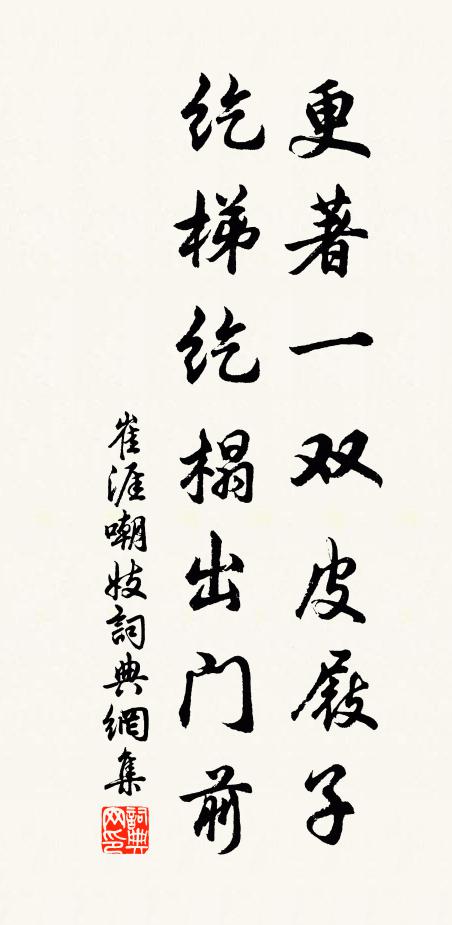 更著一双皮屐子
纥梯纥榻出门前
崔涯嘲妓詞典網集
詞典网印